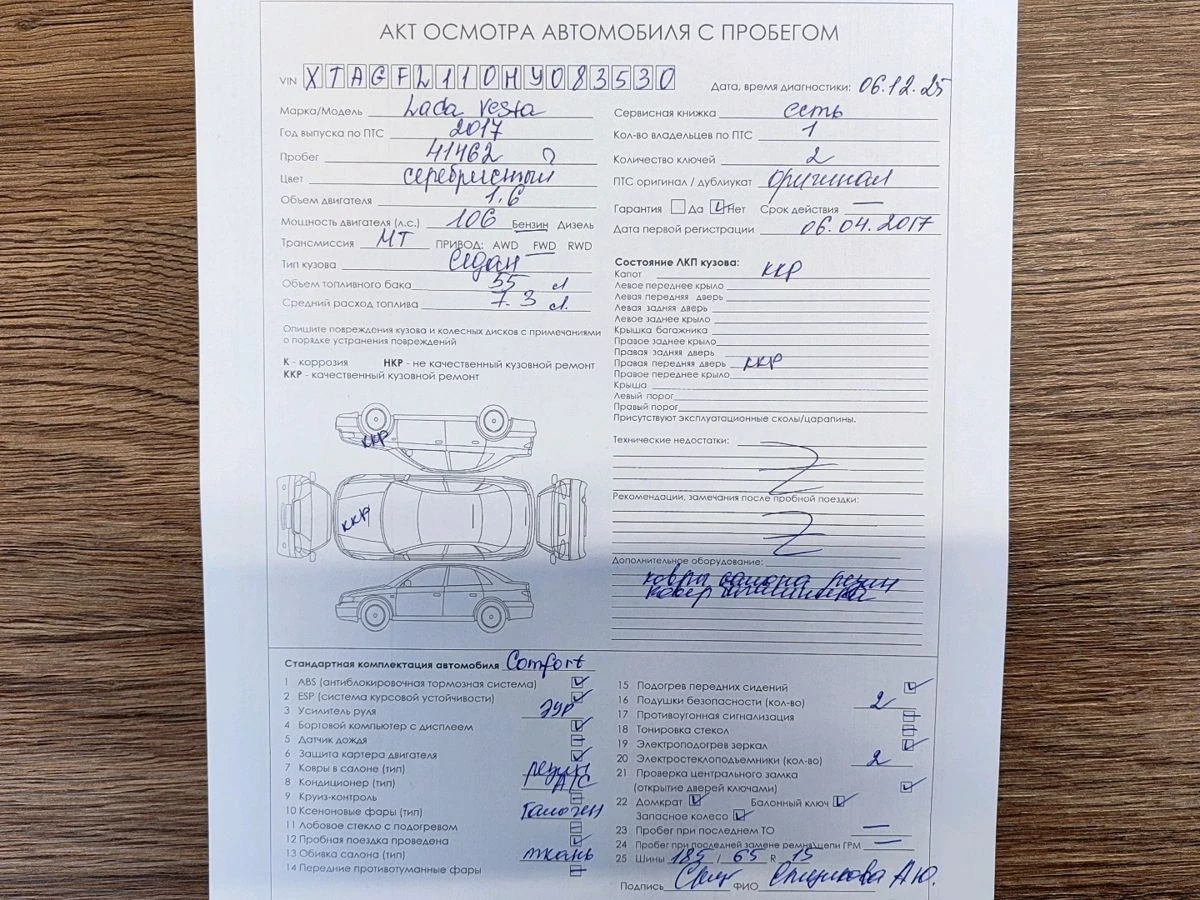 АКТ ОСМОТРА АВТОМОБИЛЯ С ПРОБЕГОМ
VIN XTAGFL110HY083530
Дата, время диагностики: 06.12.25
Марка/Модель Lada Vesta
Год выпуска по ПТС 2017
Пробег 41462
Цвет серебристый
Объем двигателя 1.6
Мощность двигателя (л.с.) 106 Бензин Дизель
Трансмиссия МТ ПРИВОД: AWD FWD RWD
Тип кузова Седан
Объем топливного бака 55 л
Средний расход топлива 7.3 л.
Опишите повреждения кузова и колесных дисков с примечаниями
о порядке устранения повреждений
К - коррозия НКР - не качественный кузовной ремонт
ККР - качественный кузовной ремонт
ККР
ККР
Сервисная книжка есть
Кол-во владельцев по ПТС 1
Количество ключей 2
ПТС оригинал / дубликат оригинал
Гарантия Да Нет Срок действия —
Дата первой регистрации 06.04.2017
Состояние ЛКП кузова:
Капот ККР
Левое переднее крыло
Левая передняя дверь
Левая задняя дверь
Левое заднее крыло
Крышка багажника
Правое заднее крыло
Правая задняя дверь
Правая передняя дверь ККР
Правое переднее крыло
Крыша
Левый порог
Правый порог
Присутствуют эксплуатационные сколы/царапины.
Технические недостатки:
Рекомендации, замечания после пробной поездки:
Дополнительное оборудование:
ковры салона резин
ковер багажника
Стандартная комплектация автомобиля Comfort
1 ABS (антиблокировочная тормозная система)
2 ESP (система курсовой устойчивости)
3 Усилитель руля ЭУР
4 Бортовой компьютер с дисплеем
5 Датчик дождя
6 Защита картера двигателя
7 Ковры в салоне (тип) резин
8 Кондиционер (тип) A/C
9 Круиз-контроль
10 Ксеноновые фары (тип) Галоген
11 Лобовое стекло с подогревом
12 Пробная поездка проведена
13 Обивка салона (тип) ткань
14 Передние противотуманные фары
15 Подогрев передних сидений
16 Подушки безопасности (кол-во) 2
17 Противоугонная сигнализация
18 Тонировка стекол
19 Электроподогрев зеркал
20 Электростеклоподъемники (кол-во) 2
21 Проверка центрального замка
(открытие дверей ключами)
22 Домкрат Балонный ключ
Запасное колесо
23 Пробег при последнем ТО —
24 Пробег при последней замене ремня/цепи ГРМ —
25 Шины 185 / 65 R 15
Подпись ФИО А.Ю.